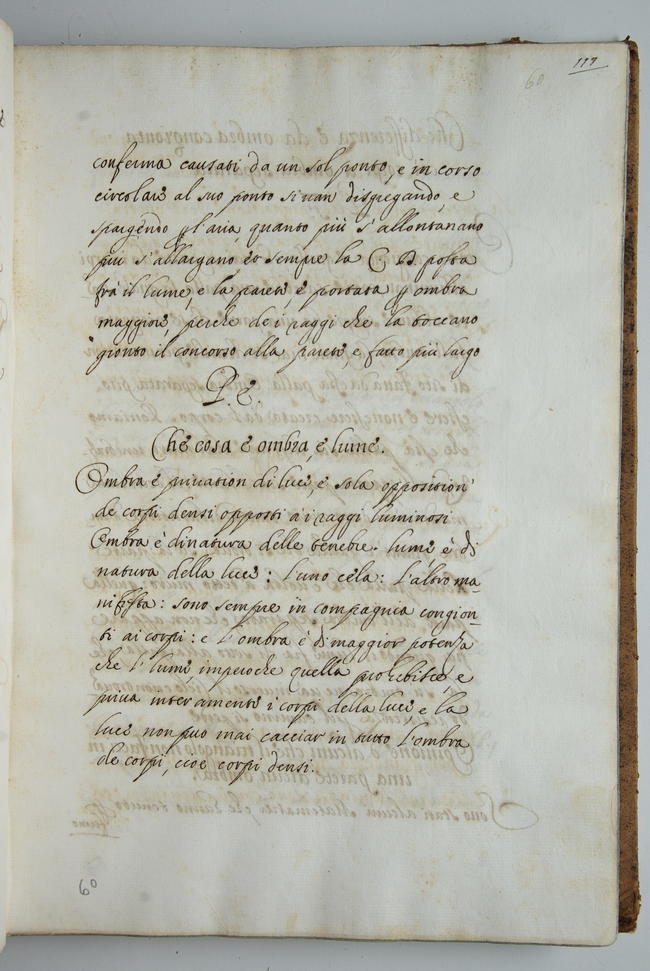 60 111
conferma causati da un sol ponto, e in corso
circolare al suo ponto si uan disgregando, e
spargendo p l'aria, quanto più s'allontanano
più s'allargano et sempre la C. B. posta
frà il lume, e la parete è portata p ombra
maggiore, perche de i raggi che la toccano
gionto il concorso alla parete, e fatto più largo
P. E.
Che cosa è ombra, e lume.
Ombra è priuation di luce, e sola opposition
de corpi densi opposti ai raggi luminosi
Ombra è di natura delle tenebre. lume è di
natura della luce: l'uno cela: l'altro ma-
nifesta: sono sempre in compagnia congion-
ti ai corpi: e l'ombra è di maggior potenza
che l' lume, imperoche quella prohibisce, e
priua interamente i corpi della luce, e la
luce non puo mai cacciar in tutto l'ombra
de corpi, cioe corpi densi.
60